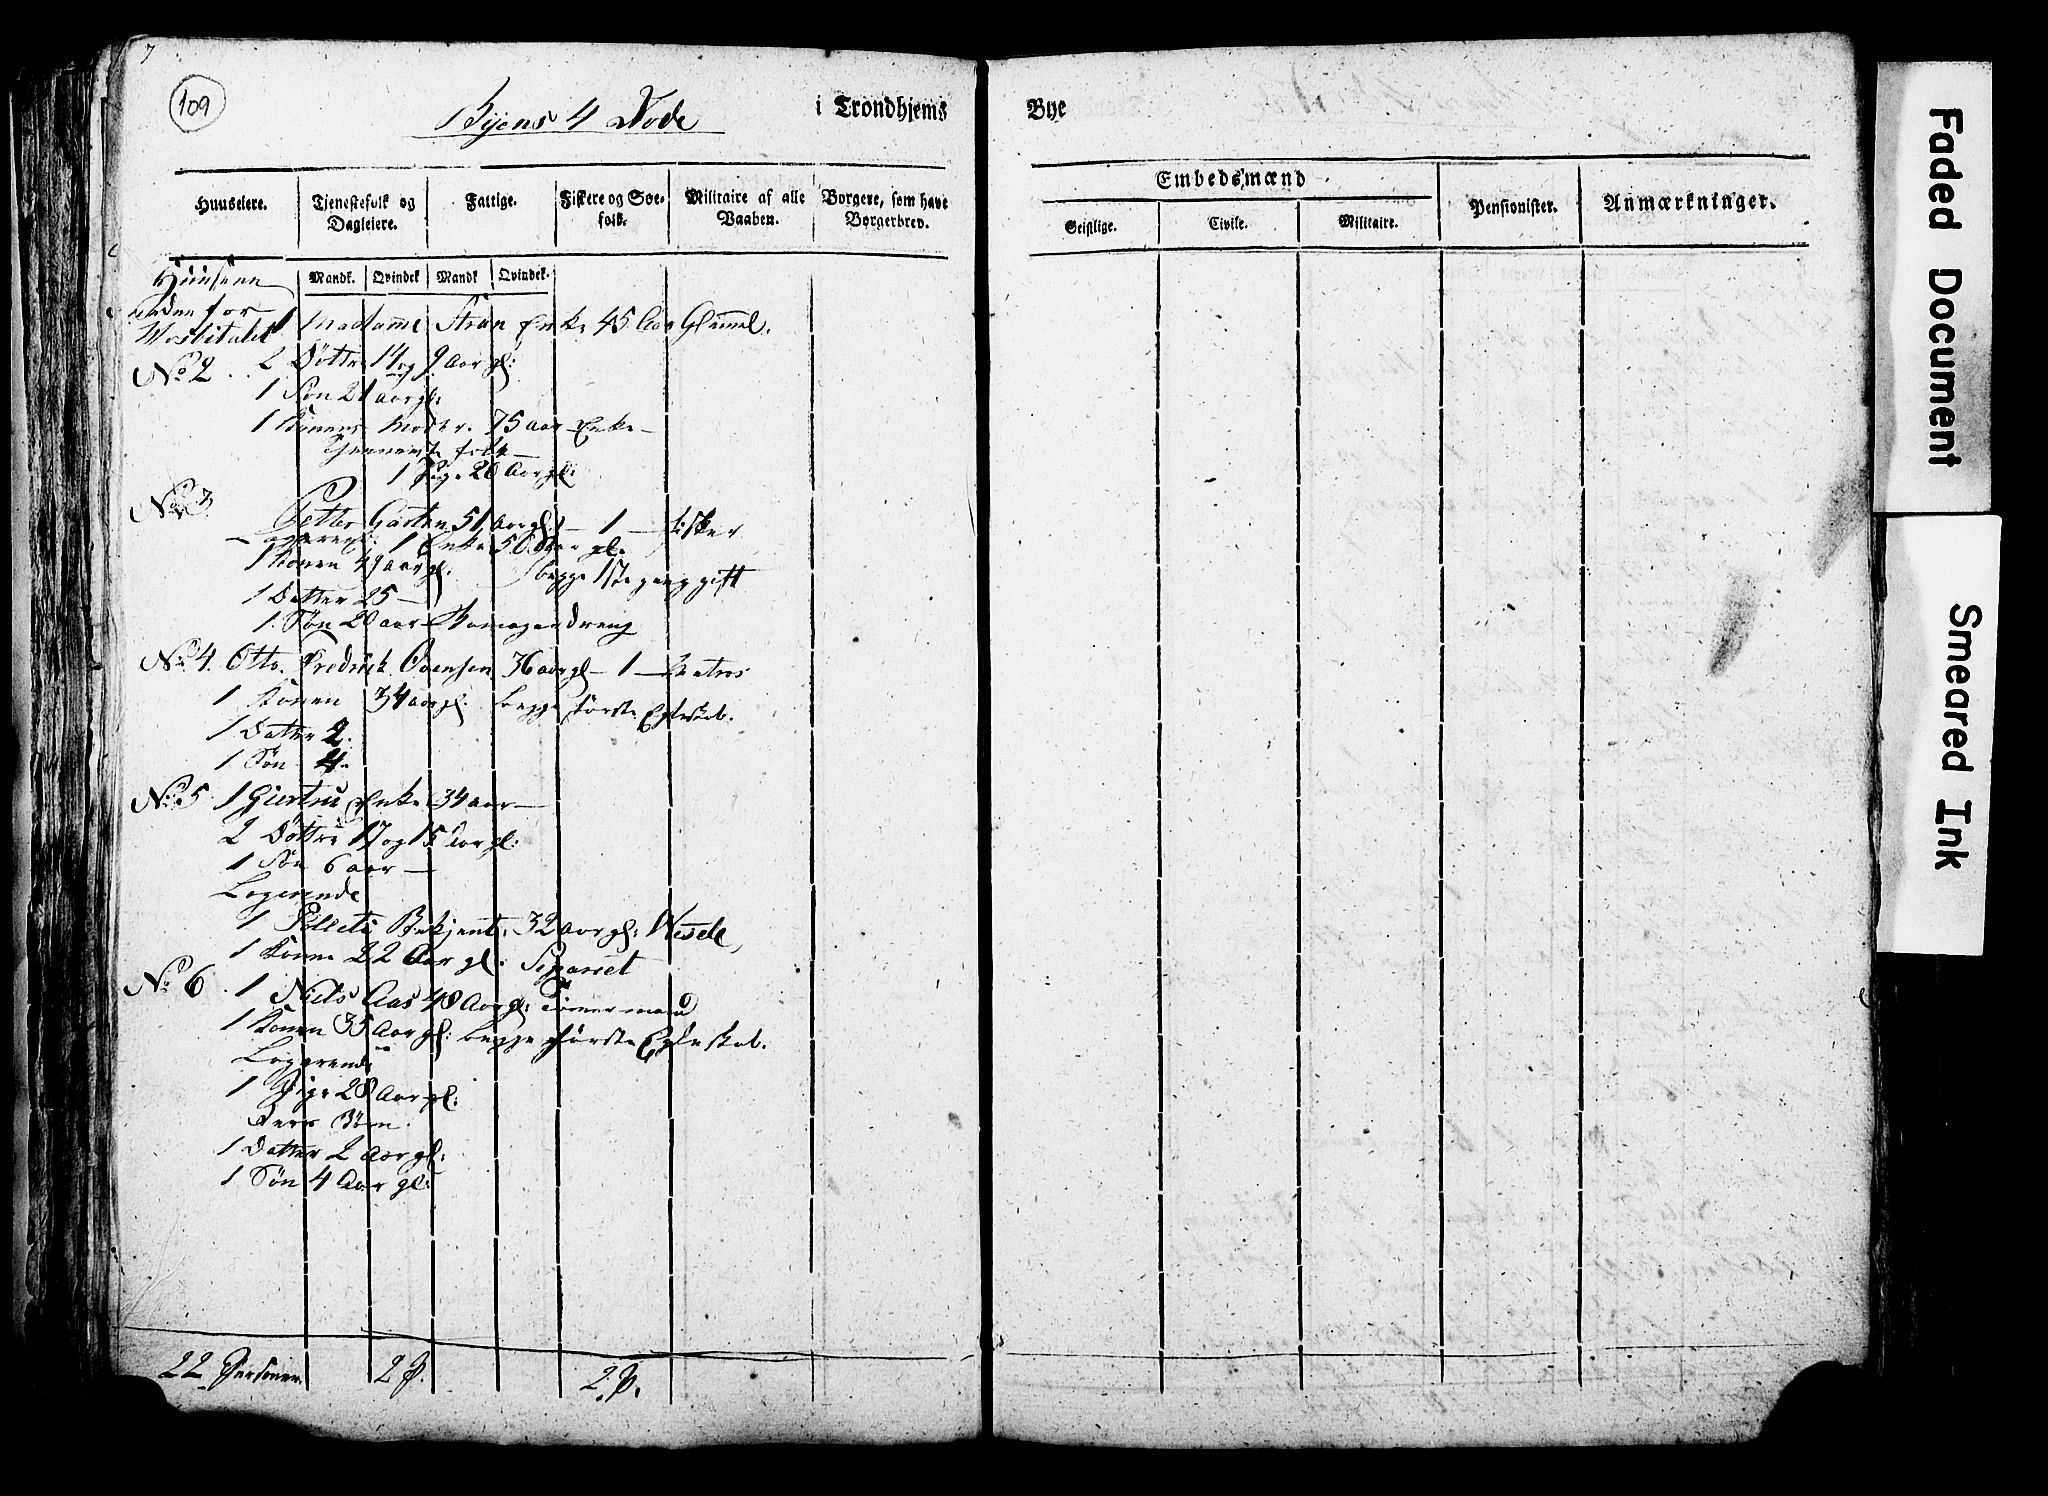 7
109
Byens 4 Rode
i Trondhjems Bye
Huuseiere.
Tjenestefolk og Dagleiere.
Fattige.
Fiskere og Søefolk.
Militaire af alle Vaaben.
Borgere, som have Borgerbrev.
Embedsmænd
Geistlige.
Civile.
Militaire.
Pensionister.
Anmærkninger.
Mandk. Qvindek Mandk Qvindek.
Huusene
udenfor
Hosbitalet
1 Madamme Stran Enke 45 Aar Gl
No 2 2 Døttre 14 og 9 Aar gl:
1 Søn 21 aar gl:
1 Konens Moder. 75 aar Enke
folk
1 Pige 20 Aar gl:
No 3 Petter Garten 51 aar gl: 1 fisker
1 Enke 50 Aar gl.
1 Konen 49 aar gl. begge 1ste gang gift
1 Datter 25
1 Søn 20 aar
No 4. Otto Fredrick Svensen 36 aar gl 1 Matros
1 Konen 34 aar gl: begge første Egteskab.
1 Datter 2.
1 Søn 4
No 5 1 Giertru Enke 34 aar
2 Døttre 17 og 15 Aar gl:
1 Søn 6 aar
Logerende
1 32 aar gl:
1 Konen 22 Aar gl. Separeret
No 6 1 Niels Aas 48 Aar gl: Tømermand
1 Konen 35 Aar gl: begge første Egteskab.
Logerende
1 Pige 28 Aar gl:
Børn.
1 Datter 2 Aar gl:
1 Søn 4 Aar gl:
22 Personer. 2 P. 2. P.
Faded Document
Smeared Ink